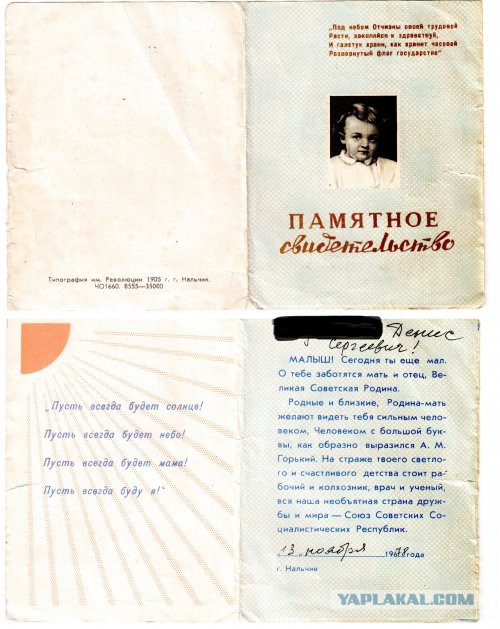 „Под небом Отчизны своей трудовой
Расти, закаляйся и здравствуй,
И галстук храни, как хранит часовой
Развернутый флаг государства"
ПАМЯТНОЕ
свидетельство
Типография им. Революции 1905 г. г. Нальчик.
ЧО1660. 8555—35000
Денис
Сергеевич!
МАЛЫШ! Сегодня ты еще мал.
О тебе заботятся мать и отец, Ве-
ликая Советская Родина.
Родные и близкие, Родина-мать
желают видеть тебя сильным чело-
веком, Человеком с большой бук-
вы, как образно выразился А. М.
Горький. На страже твоего светло-
го и счастливого детства стоит ра-
бочий и колхозник, врач и ученый,
вся наша необъятная страна друж-
бы и мира — Союз Советских Со-
циалистических Республик.
„13" ноября 1978 года
г. Нальчик
„Пусть всегда будет солнце!
Пусть всегда будет небо!
Пусть всегда будет мама!
Пусть всегда буду я!"
YAPLAKAL.COM